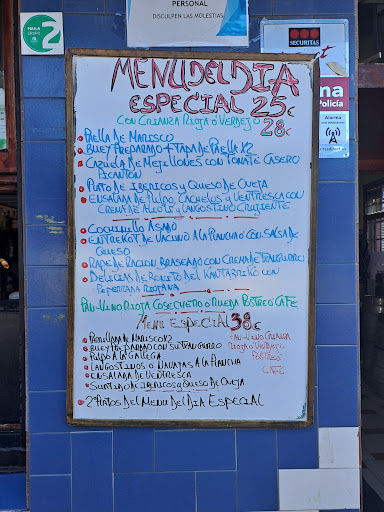 PERSONAL
DISCULPEN LAS MOLESTIAS
2
SECURITAS
Policía
Alarma
MENU DEL DIA
ESPECIAL 25€
CON CRIANZA RIOJA O VERDEJO 28€
PAELLA DE MARISCO
BUEY PREPARADO + TAPA DE PAELLA X2
CAZUELA DE MEJILLONES CON TOMATE CASERO
PICANTON
PLATO DE IBERICOS Y QUESO DE OVEJA
ENSALADA DE PULPO, CACHELOS Y VENTRESCA CON
CREMA DE ALLOLI Y LANGOSTINO CRUJIENTE
COCHINILLO ASADO
ENTREKOT DE VACUNO A LA PLANCHA O CON SALSA DE
QUESO
RAPE DE RACION BRASEADO CON CREMA DE TXANGURRO
DELICIAS DE BONITO DEL KANTABRIKO CON
PIPERRADA RIOJANA
PAN-VINO RIOJA COSECHERO O RUEDA POSTRE O CAFE
MENU ESPECIAL 38€
PARRILLADA DE MARISCO X2
BUEY PREPARADO CON SU TXANGURRO
PULPO A LA GALLEGA
LANGOSTINOS O NAVAJAS A LA PLANCHA
ENSALADA DE VENTRESCA
SURTIDO DE IBERICOS Y QUESO DE OVEJA
-PAN-VINO CRIANZA
RIOJA O VERDEJO
POSTRE O
CAFE
2º PLATOS DEL MENU DEL DIA ESPECIAL